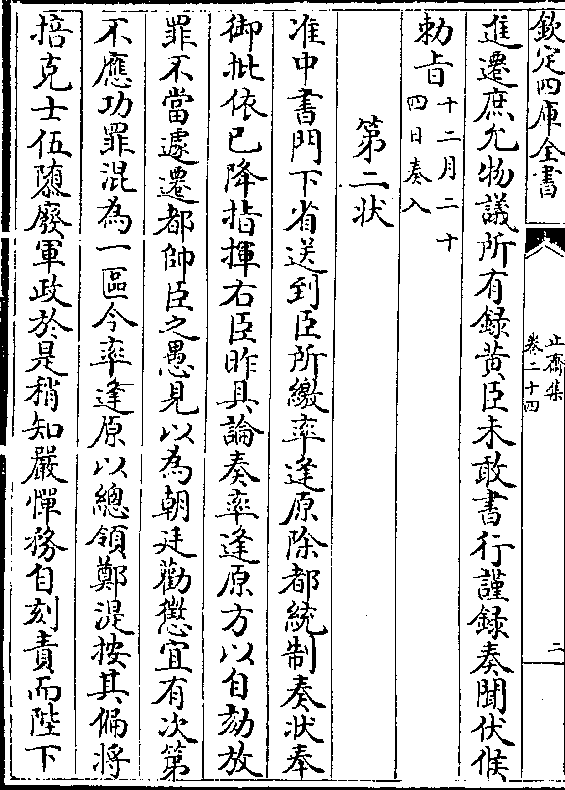 欽定四庫全書
止齋集
卷二十四
二
進遷庶允物議所有錄黃臣未敢書行謹錄奏聞伏候
勅旨十二月二十
四日奏入
第二狀
准中書門下省送到臣所繳率逢原除都統制奏狀奉
御批依已降指揮右臣昨具論奏率逢原方以自劾放
罪不當遽遷都帥臣之愚見以為朝廷勸懲宜有次第
不應功罪混為一區今率逢原以總領鄭湜按其偏將
掊克士伍隳廢軍政於是稍知嚴憚務自刻責而陛下